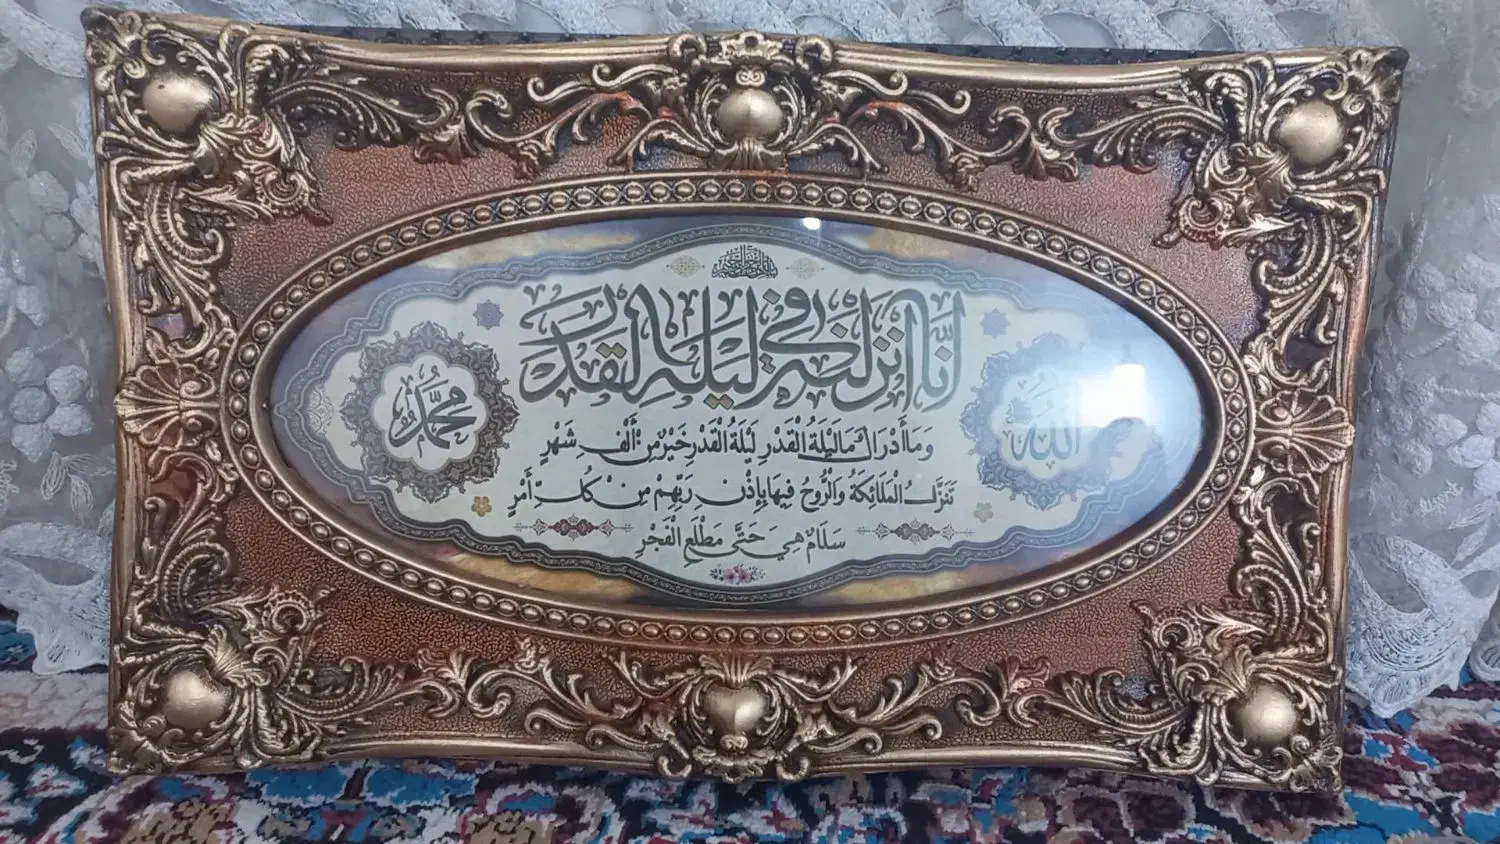 بسم الله الرحمن الرحيم
إنَّا أنزلنه في ليلة القدر
الله
محمد
وَمَا أَدْرَاكَ مَا لَيْلَةُ الْقَدْرِ لَيْلَةُ الْقَدْرِ خَيْرٌ مِنْ أَلْفِ شَهْرٍ
تَنَزَّلُ الْمَلَائِكَةُ وَالرُّوحُ فِيهَا بِإِذْنِ رَبِّهِمْ مِنْ كُلِّ أَمْرٍ
سَلَامٌ هِيَ حَتَّى مَطْلَعِ الْفَجْرِ